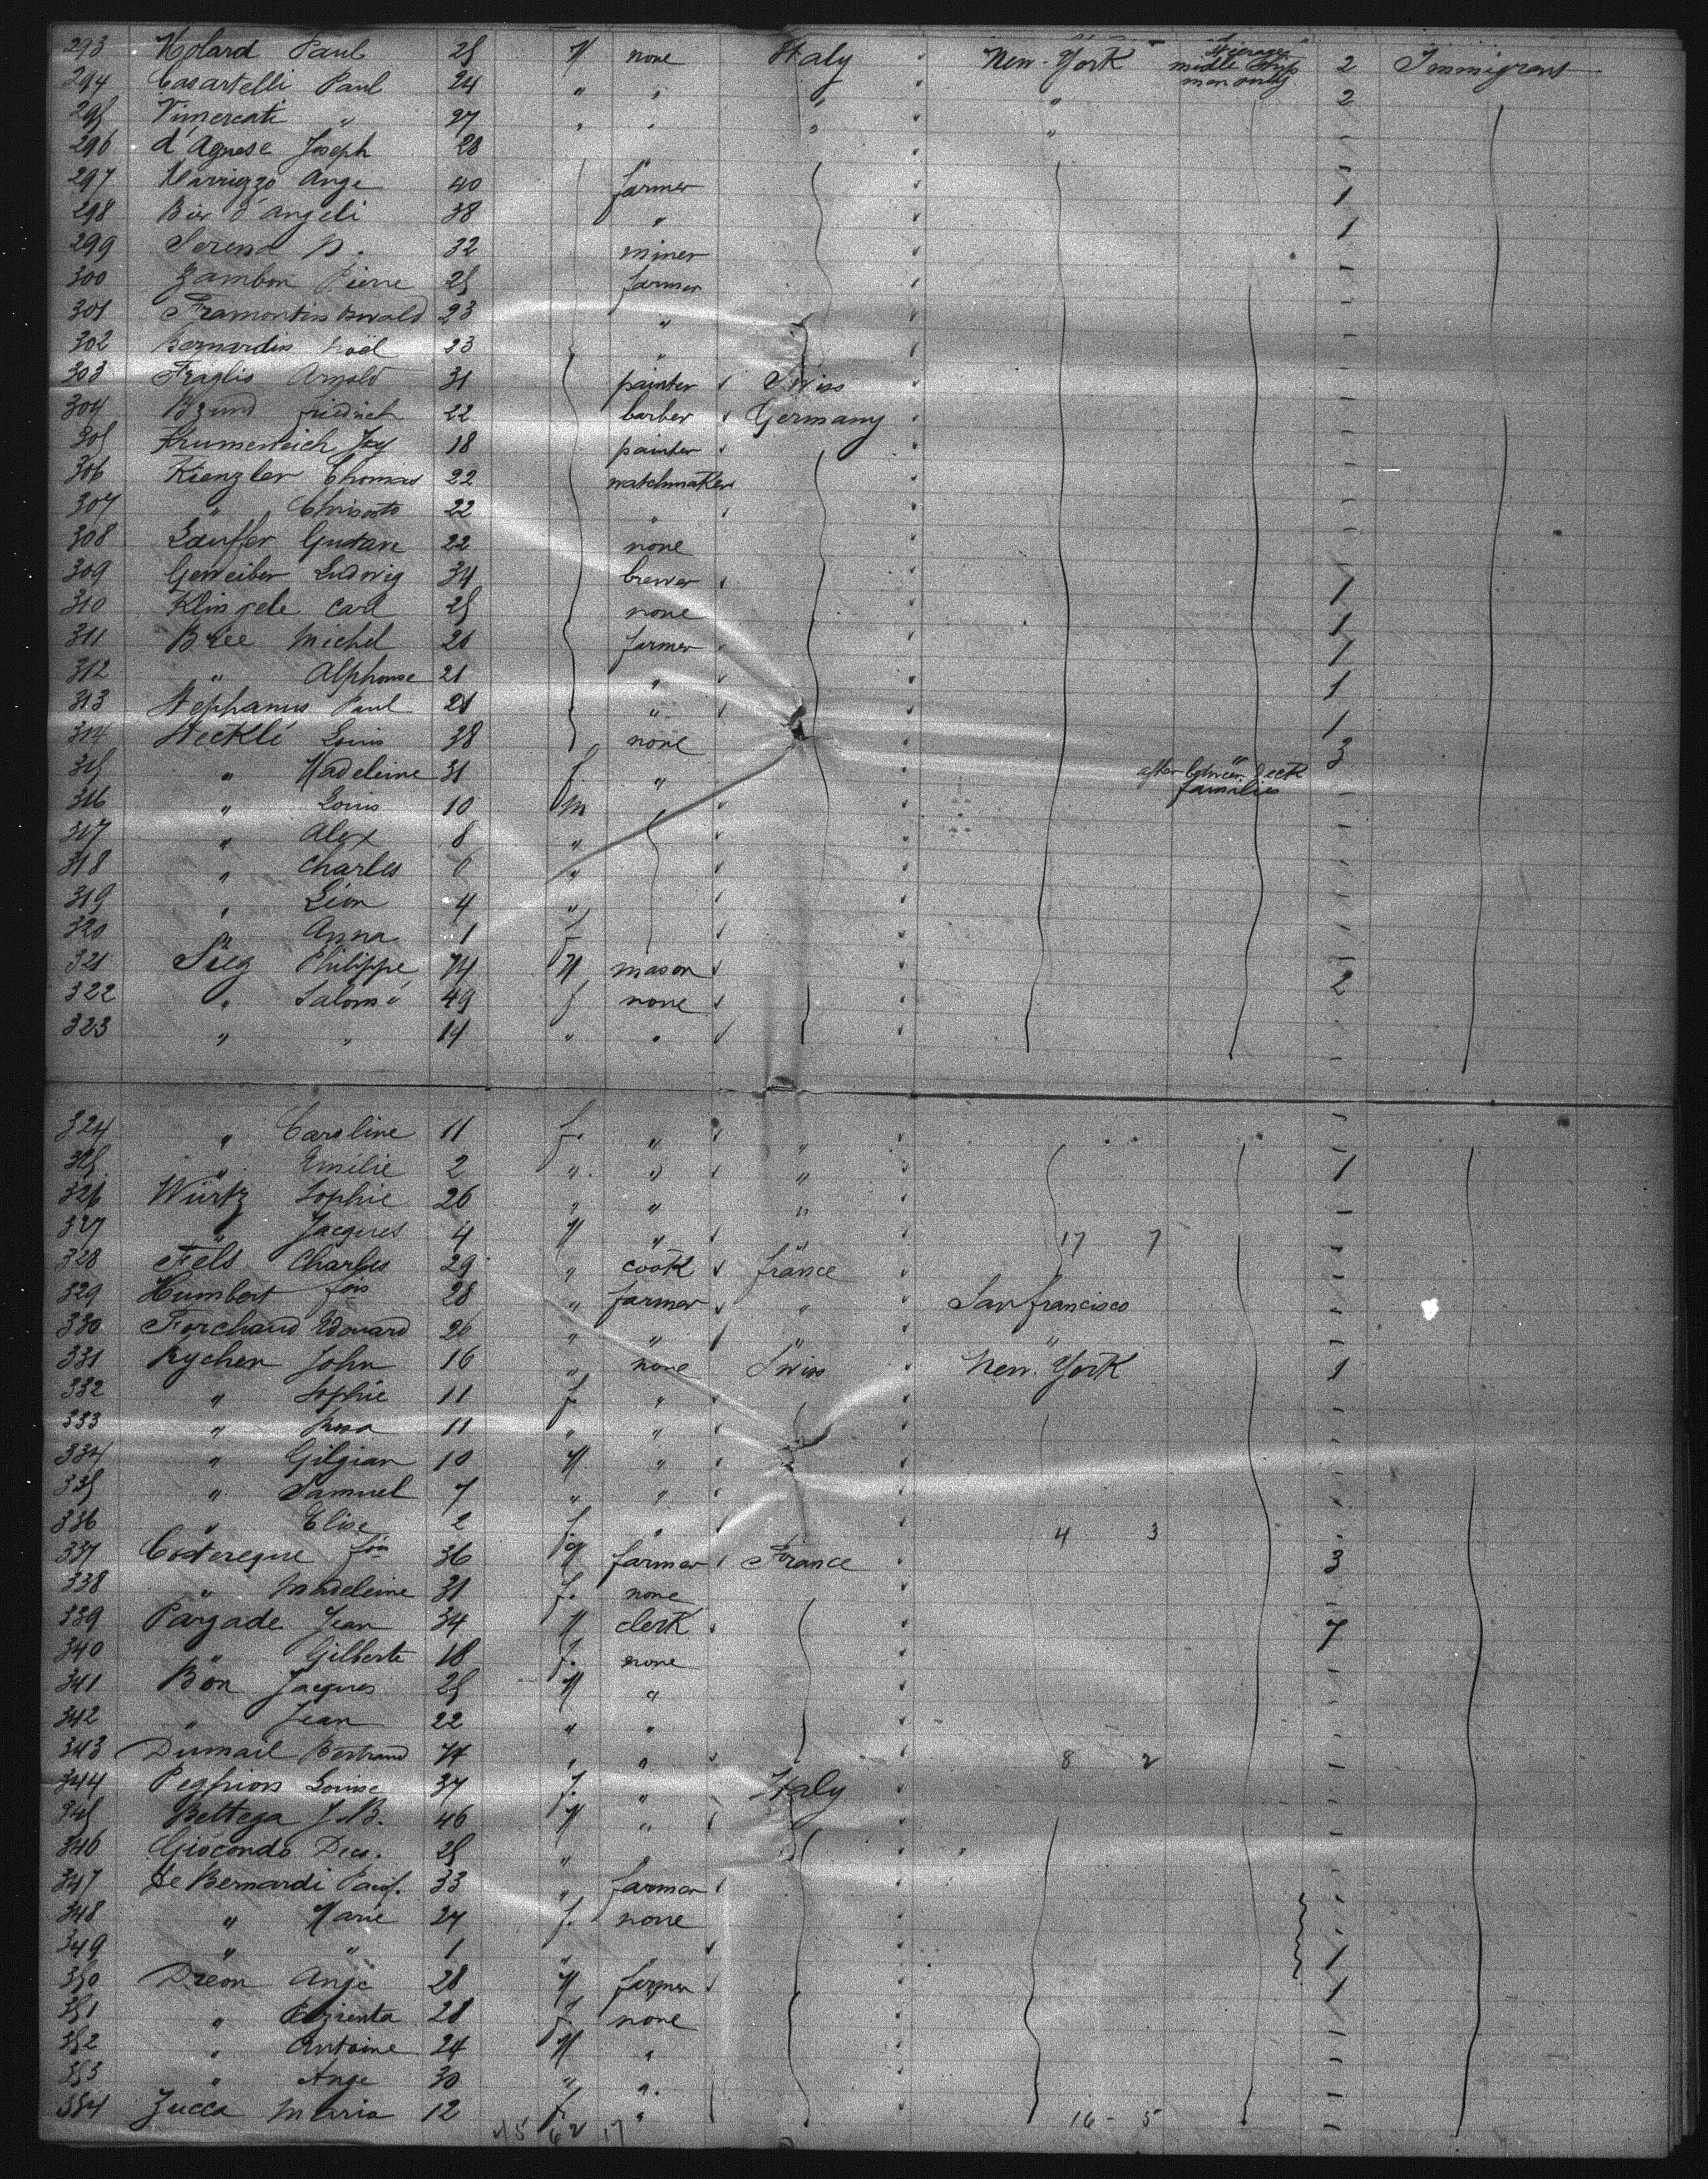 293 Molard Paul 25 M none Italy New-York Steerage midle ships men only 2 Immigrant
294 Casartelli Paul 24 " " " " 2
295 Vimercati " 27 " " " " -
296 d'Agnese Joseph 28 -
297 Marrizzo Ange 40 farmer 1
298 d'Angeli 38 " 1
299 Serena 32 miner -
300 Zambon Pierre 25 farmer -
301 Framontin 23 " -
302 Bernardin Noël 23 " -
303 Fraglio Arnold 31 painter Swiss -
304 Friedrich 22 barber Germany -
305 18 painter -
306 Kienzler Thomas 22 watchmaker -
307 " 22 " -
308 Lauffer Gustave 22 none -
309 Geweiber Ludwig 34 brewer 1
310 Klingele Carl 25 none 1
311 Bree Michel 21 farmer 1
312 " Alphonse 21 " 1
313 Stephanus Paul 21 " 1
314 Stecklé Louis 38 none 3
315 " Madeleine 31 f. " after between deck families -
316 " Louis 10 M -
317 " Alex 8 " -
318 " Charles 6 " -
319 " Léon 4 " -
320 " Anna 1 f -
321 Sieg Philippe 74 M mason 2
322 " Salomé 49 f none -
323 " " 14 " " -
324 " Caroline 11 f. " " -
325 " Emilie 2 " " " 1
326 Würtz Sophie 26 " " " -
327 " Jacques 4 M " " 17 7 -
328 Fels Charles 29 " cook France -
329 Humbert fois 28 " farmer " San francisco -
330 Forchaud Edouard 26 " " " " -
331 Rychen John 16 " none Swiss New-York 1
332 " Sophie 11 f. " -
333 " Rosa 11 " " -
334 " Gilgian 10 M " -
335 " Samuel 7 " " -
336 " Elise 2 f " 4 3 -
337 Costereque fois 36 M farmer France 3
338 " Madeleine 31 f. none -
339 Payade Jean 34 M clerk 7
340 " Gilberte 18 f. none -
341 Bon Jacques 25 M " -
342 " Jean 22 " " -
343 Dumail Bertrand 74 " " 8 2 -
344 Louise 37 f. " Italy -
345 Bettega J.B. 46 M " -
346 Giocondo 25 " " -
347 de Bernardi 33 " farmer -
348 " Marie 27 f. none -
349 " " 1 " " 1
350 Dreon Ange 28 M farmer 1
351 " 28 f none -
352 " Antoine 24 M " -
353 " Ange 30 " " -
354 Zucca Maria 12 f. " 16 - 5 -
45 62 17